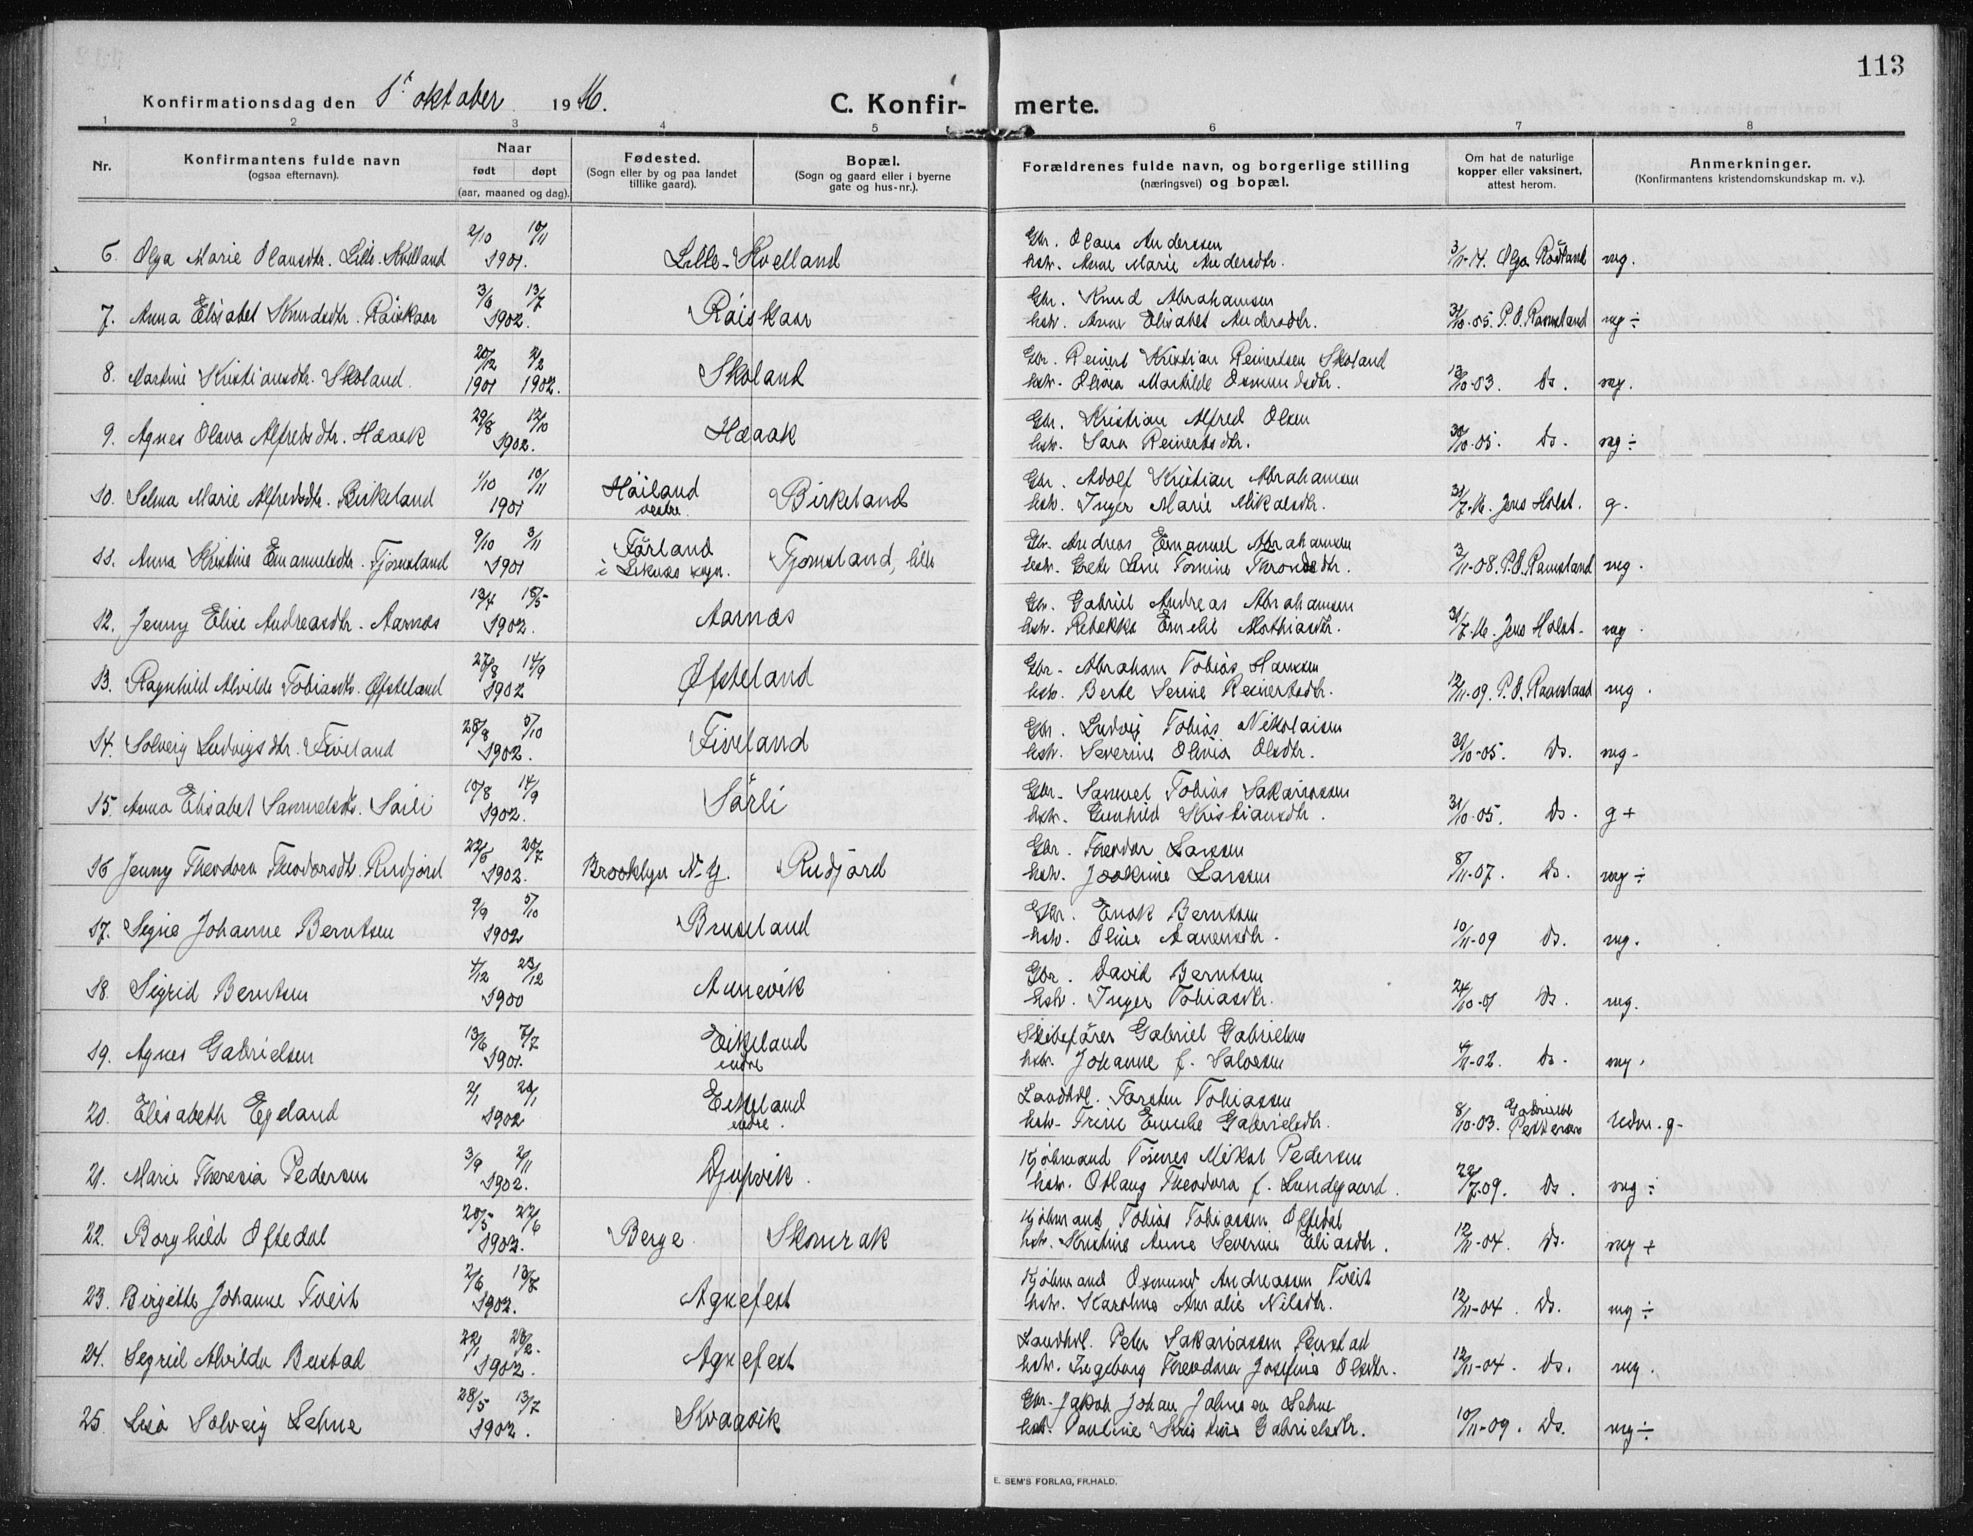 113
Konfirmationsdag den 1st oktober 1916. C. Konfir- merte.
1 2 3 4 5 6 7 8
Nr. Konfirmantens fulde navn (ogsaa efternavn). Naar født døpt (aar, maaned og dag). Fødested. (Sogn eller by og paa landet tillike gaard). Bopæl. (Sogn og gaard eller i byerne gate og hus-nr.). Forældrenes fulde navn, og borgerlige stilling (næringsvei) og bopæl. Om hat de naturlige kopper eller vaksinert, attest herom. Anmerkninger. (Konfirmantens kristendomskundskap m. v.).
6. Olga Marie Olausdtr. Lille-Kvelland 2/10 10/11 1901. Lille-Kvelland Gbr. Olaus Anderssen hstr. Anne Marie Andersdtr. 3/11-14. Olga Rødland mg.
7. Anna Elisabet Knudsdtr. Røiskaar 3/6 13/7 1902. Røiskaar Gbr. Knud Abrahamsen hstr. Anne Elisabet Andersdtr. 31/10-05. P.O. Ramsland mg÷
8. Martine Kristiansdtr. Skoland. 20/12 2/2 1901 1902. Skoland Gbr. Reinert Kristian Reinertsen Skoland hstr. Olivia Mathilde Osmundsdtr. 13/10-03. Ds. mg.
9. Agnes Olava Alfredsdtr. Hæaak 29/8 12/10 1902. Hæaak Gbr. Kristian Alfred Olsen hstr. Sara Reinertsdtr. 30/10-05. Ds. mg÷
10. Selma Marie Alfredsdtr. Birkeland 1/10 10/11 1901 Høiland vestre. Birkeland Gbr. Adolf Kristian Abrahamsen hstr. Inger Marie Mikalsdtr. 31/7-16. Jens Holst. g.
11. Anna Kristine Emanuelsdtr. Fjomeland 9/10 3/11 1901 Førland i Liknes sogn. Tjomsland, lille Gbr. Andreas Emanuel Abrahamsen hstr. Grete Line Tomine Throndsdtr. 3/11-08. P.O. Ramsland mg.
12. Jenny Elise Andreasdtr. Aarnes 13/4 18/5 1902. Aarnes Gbr. Gabriel Andreas Abrahamsen hstr. Rebekka Emelie Mathiasdtr. 31/7-16. Jens Holst. mg.
13. Ragnhild Alvilde Tobiasdtr. Øfsteland 27/8 14/9 1902 Øfsteland Gbr. Abraham Tobias Hanssen hstr. Berte Serine Reinertsdtr. 12/11-09. P.O. Ramsland mg.
14. Solveig Ludvigsdtr. Fiveland 28/8 5/10 1902. Fiveland Gbr. Ludvig Tobias Nikolaisen hstr. Severine Olivia Olsdtr. 31/10-05. Ds. mg-
15. Anna Elisabet Samuelsdtr. Sørli 10/8 14/9 1902. Sørli Gbr. Samuel Tobias Sakariassen hstr. Gunhild Kristiansdtr. 31/10-05. Ds. g+
16 Jenny Theodora Theodorsdtr. Rudjord 22/5 20/7 1902. Brooklyn N.Y. Rudjord Gbr. Theodor Larssen hstr. Joakime Larssen 8/11-07. Ds. mg÷
17. Signe Johanne Berntsen 9/9 5/10 1902 Bruseland Gbr. Enok Berntsen hstr. Oline Aanensdtr. 10/11-09 Ds. mg.
18. Sigrid Berntsen 4/12 23/12 1900 Aunevik Gbr. David Berntsen hstr. Inger Tobiasdtr. 24/10-01 Ds. mg.
19. Agnes Gabrielsen 13/6 7/7 1901. Eikeland indre Skibsfører Gabriel Gabrielsen hstr. Johanne f. Salvesen 4/11-02. Ds. mg.
20. Elisabeth Egeland 2/1 20/1 1902 Eikeland indre. Landhdl. Torsten Tobiassen hstr. Trine Emelie Gabrielsdtr. 8/10-03. Gabrielle Pettersen Udm. g-
21. Marie Theresia Pedersen 3/9 2/11 1902. Djupvik. Kjøbmand Tønnes Mikal Pedersen hstr. Otlaug Theodora f. Lundegaard. 22/7-09. Ds. mg÷
22. Borghild Oftedal 20/5 22/6 1902. Berge Skomrak Kjøbmand Tobias Tobiassen Oftedal hstr. Kristine Anne Severine Eliasdtr. 12/11-04. Ds. mg+
23. Birgitte Johanne Tveit 2/6 13/7 1902. Agnefest Kjøbmand Osmund Andreassen Tveit hstr. Karoline Amalie Nilsdtr. 12/11-04. Ds. mg÷
24. Segrid Alvilda Bustad 22/1 23/2. 1902. Agnefest Landhdl. Peter Sakariassen Bustad hstr. Ingeborg Theodora Josefine Olsdtr. 12/11-04. Ds. mg.
25. Lisa Solveig Lehne 28/5 13/7 1902. Kvaavik Gbr. Jakob Johan Johnsen Lehne hstr. Pauline Kristine Gabrielsdtr. 10/11-09. Ds. mg÷
E. SEM'S FORLAG, FR.HALD.